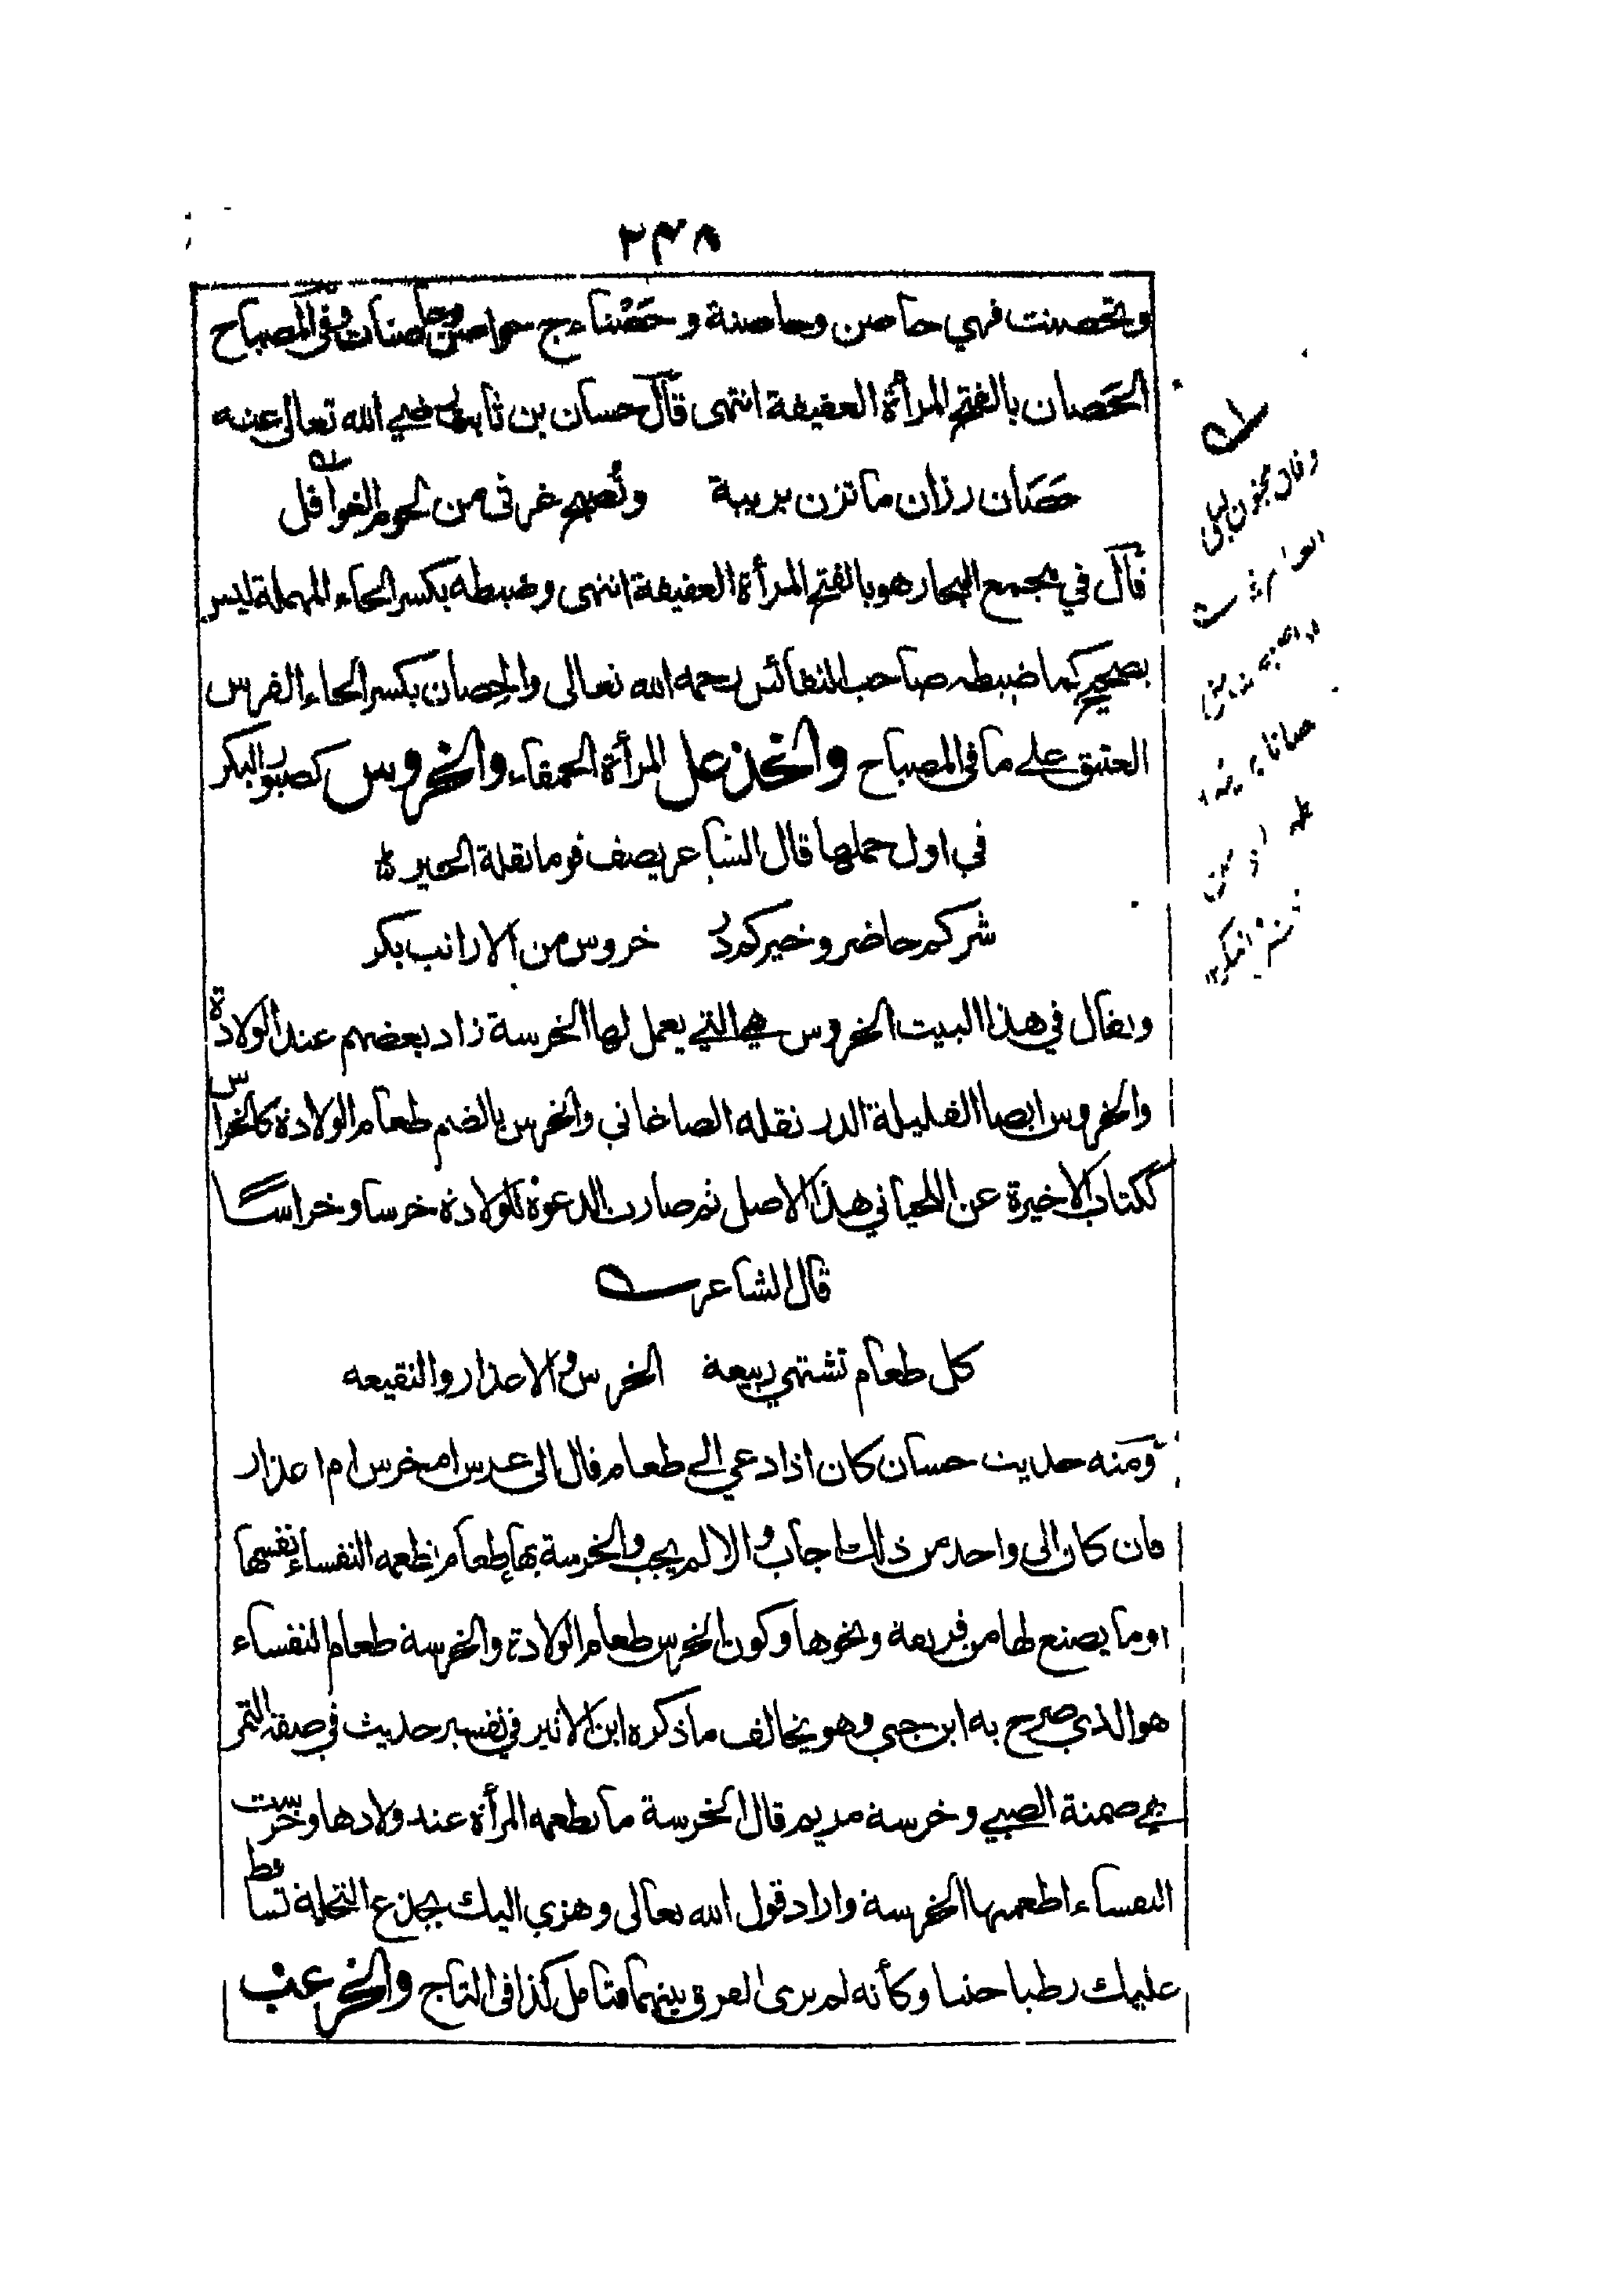 ٢٣٨
وتحصنت فهي حاصن وحاصنة وحَصْناء ج حواصن وحاصنات وفي المصباح
الحَصان بالفتح المرأة العفيفة انتهى قال حسان بن ثابت رضي الله تعالى عنه
حَصَان رزان ما تزن بريبة وتُصبح غرثى من لحوم الغوافل
قال في مجمع البحار هو بالفتح المرأة العفيفة انتهى وضبطه بكسر الحاء المهملة ليس
بصحيح كما ضبطه صاحب النفائس رحمه الله تعالى والحِصان بكسر الحاء الفرس
العتيق على ما في المصباح والخذعل المرأة الحمقاء والخروس كصبور البكر
في اول حملها قال الشاعر يصف قوما بقلة الخير
شركم حاضر وخيركم دُ خروس من الارانب بكر
ويقال في هذا البيت الخروس هي التي يعمل لها الخرسة زاد بعضهم عند الولادة
والخروس ايضا القليلة الدر نقله الصاغاني والخرس بالضم طعام الولادة كالخراس
ككتاب الاخيرة عن اللحياني هذا الاصل ثم صارت الدعوة للولادة خرسا وخراسًا
قال الشاعر
كل طعام تشتهي ربيعة الخرس والاعذار والنقيعه
ومنه حديث حسان كان اذا دعي الى طعام قال الى عرس ام خرس ام اعذار
فان كان الى واحد من ذلك اجاب والا لم يجب والخرسة بهاء طعام تطعمه النفساء نفسها
او ما يصنع لها من فريعة ونحوها وكون الخرس طعام الولادة والخرسة طعام النفساء
هو الذي صرح به ابن جني وهو يخالف ما ذكره ابن الاثير في تفسير حديث في صفة التمر
هي صمتة الصبي وخرسة مريم قال الخرسة ما تطعمه المرأة عند ولادها وخرست
النفساء اطعمتها الخرسة واراد قول الله تعالى وهزي اليك بجذع النخلة تساقط
عليك رطبا جنيا وكأنه لم يرى الفرق بينهما فتامل كذا في التاج والخرعب
وقال مجنون ليلى